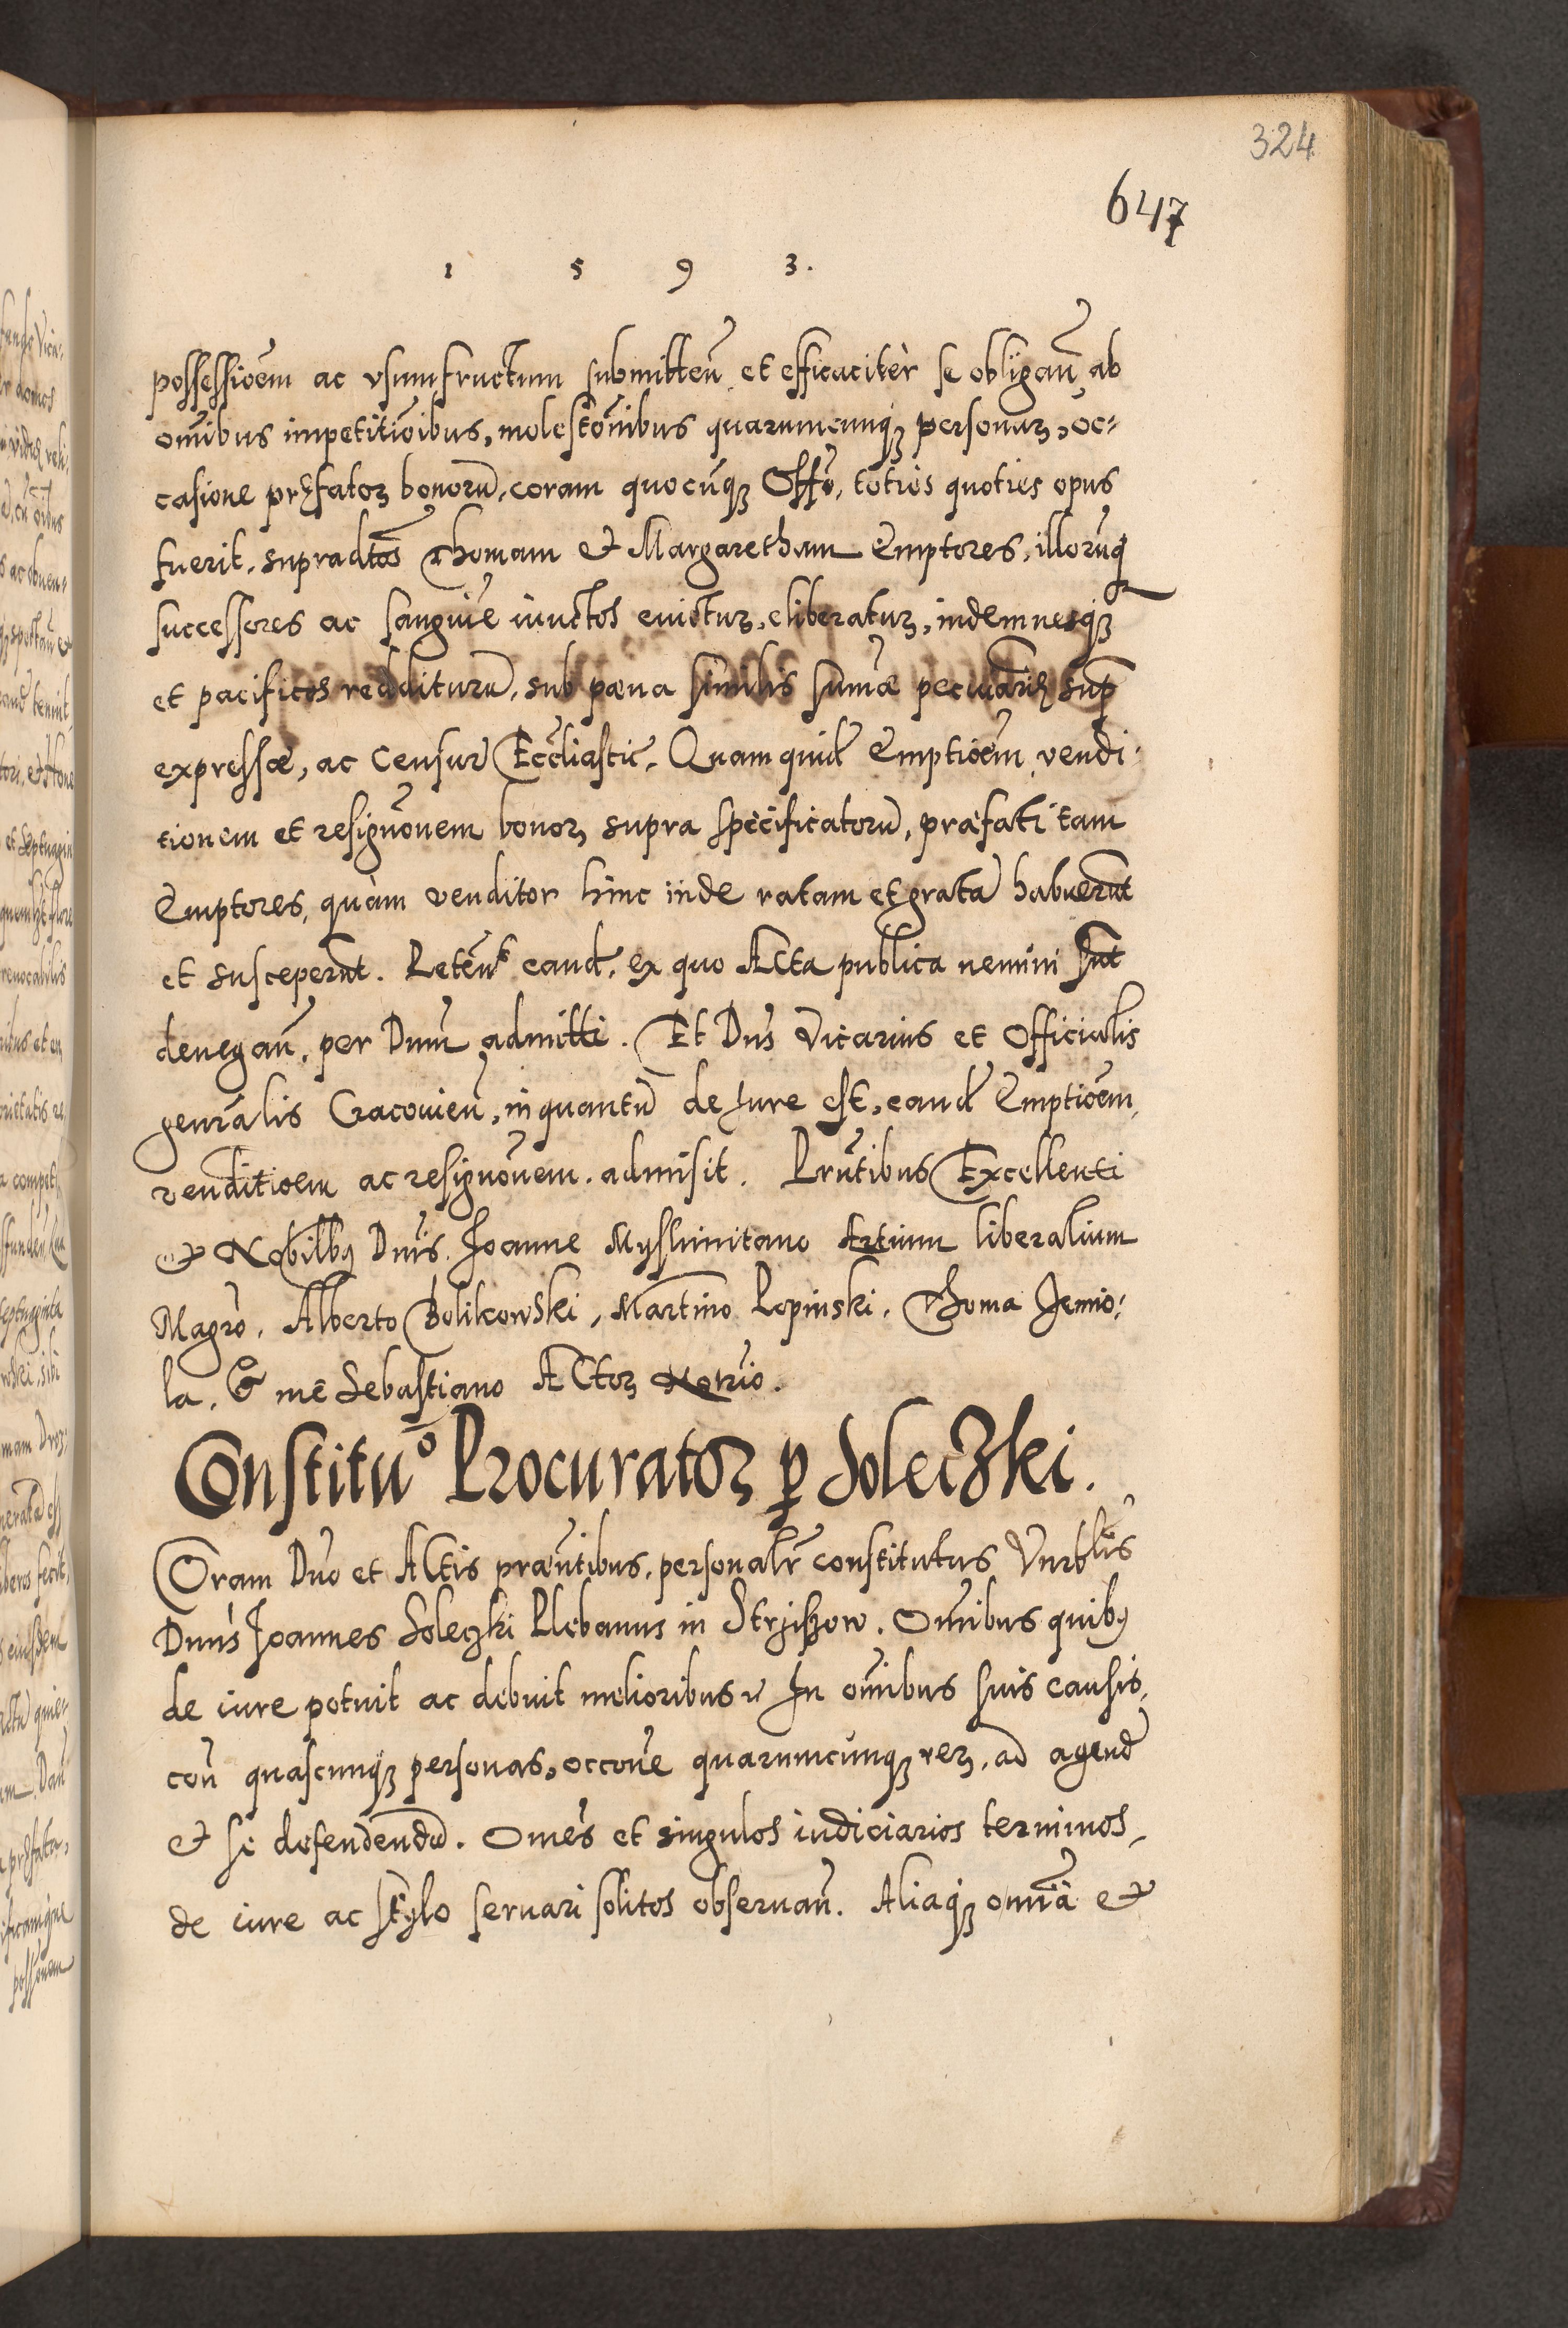 324
647
1 5 9 3.
possessioẽm ac vsumfructum submitteñ et efficacitèr se obligañ, ab
om̃ibus impetitiõibus, molestõnibus quarumcunqꝫ personaꝝ, oc=
casione pręfatoꝝ bonorũ, coram quocũqꝫ Offõ, toties quoties opus
fuerit, supradtõs Thomam et Margaretham Emptores, illorũqꝫ
successores ac sanguĩe iunctos euictuꝝ, eliberatuꝝ, indemnesqꝫ
et pacificos redditurũ, sub pœna similis sum̃æ pecuniarię sup̃
expressæ, ac Censur̃ Ecclĩastic̃. Quam quid̃ Emptioẽm, vendi-
tionem et resignõnem bonoꝝ supra specificatorũ, præfati tam
Emptores, quàm venditor hinc inde ratam et gratã habuerũt
et susceperũt. Petẽn̄t eand̃, ex quo Acta publica nemini sũt
denegañ, per Dnũm admitti. Et Dñs Vicarius et Officialis
gen̄ralis Cracouieñ, in quantũ de Iure est, eand̃ Emptioẽm,
venditioẽm ac resignõnem admisit. Prñtibus Excellenti
et Nobilibꝯ Dñis. Joanne Myslimitano Artium liberalium
Magrõ, Alberto Bolikowski, Martino Lepinski, Thoma Jemio:
la, et me Sebastiano Actoꝝ Notr̃io.
Constitũo Procuratoꝝ ꝑ SolecZki.
Coram Dño et Actis præñtibus, personalr̃ constitutus Vnrblis
Dnũs Joannes Soleczki Plebanus in Strziszow. Om̃ibus quibꝯ
de iure potuit ac debuit melioribus etc̃ In om̃ibus suis causis,
coñ quascunqꝫ personas, occõne quarumcũnqꝫ reꝝ, ad agend̃
et se defendendũ. Omẽs et singulos iudiciarios terminos,
de iure ac stylo seruari solitos obseruañ. Aliaqꝫ omnia et